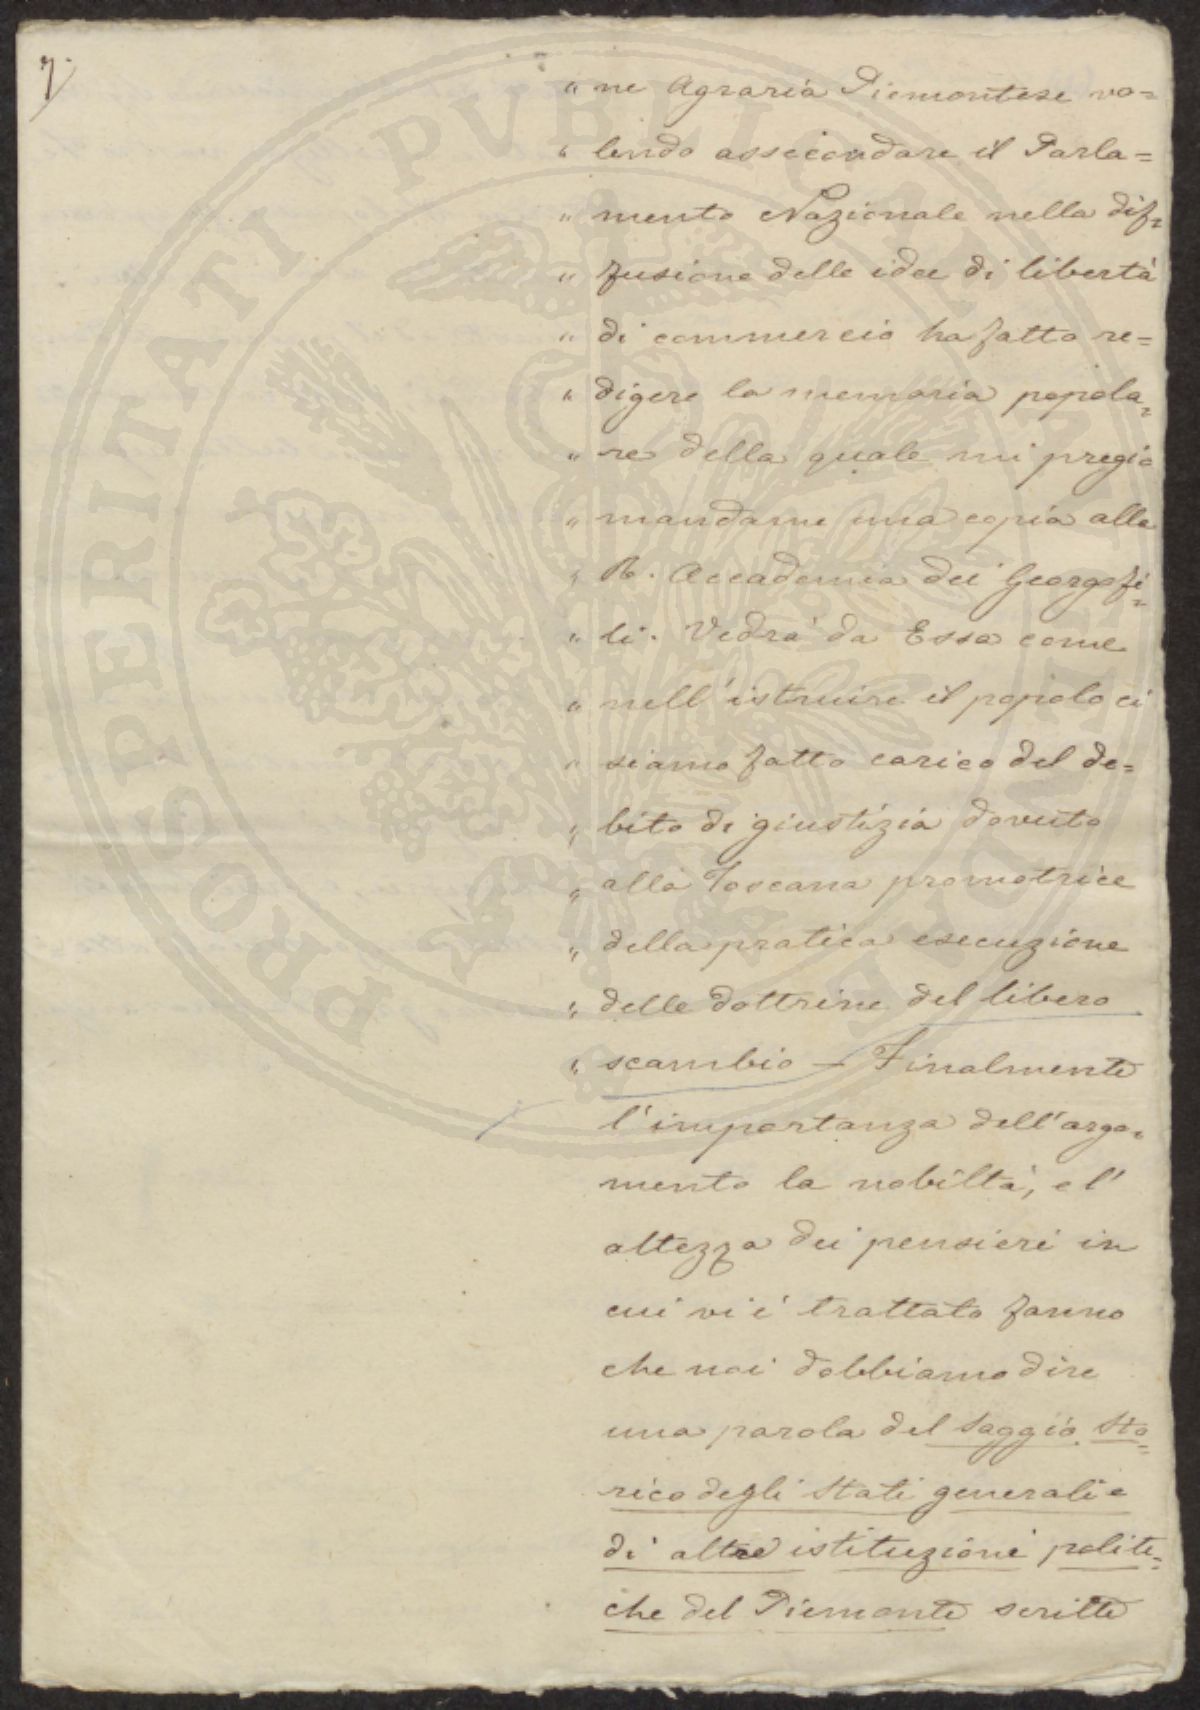 7.
" ne Agraria Piemontese vo=
" lendo assecondare il Parla=
" mento Nazionale nella dif=
" fusione delle idee di libertà
" di commercio ha fatto re=
" digere la memoria popola=
" re della quale mi pregio
" mandarne una copia alla
" R. Accademia dei Georgofi=
" li. Vedrà da Essa come
" nell'istruire il popolo ci
" siamo fatto carico del de=
" bito di giustizia dovuto
" alla Toscana promotrice
" della pratica esecuzione
" delle dottrine del libero
" scambio — Finalmente
l'importanza dell'argo=
mento la nobiltà, e l'
altezza dei pensieri in
cui vi è trattato fanno
che noi dobbiamo dire
una parola del Saggio Sto=
rico degli Stati generali e
di altre istituzioni politi=
che del Piemonte scritte
PROSPERITATI PUBLICAE AUGENDAE